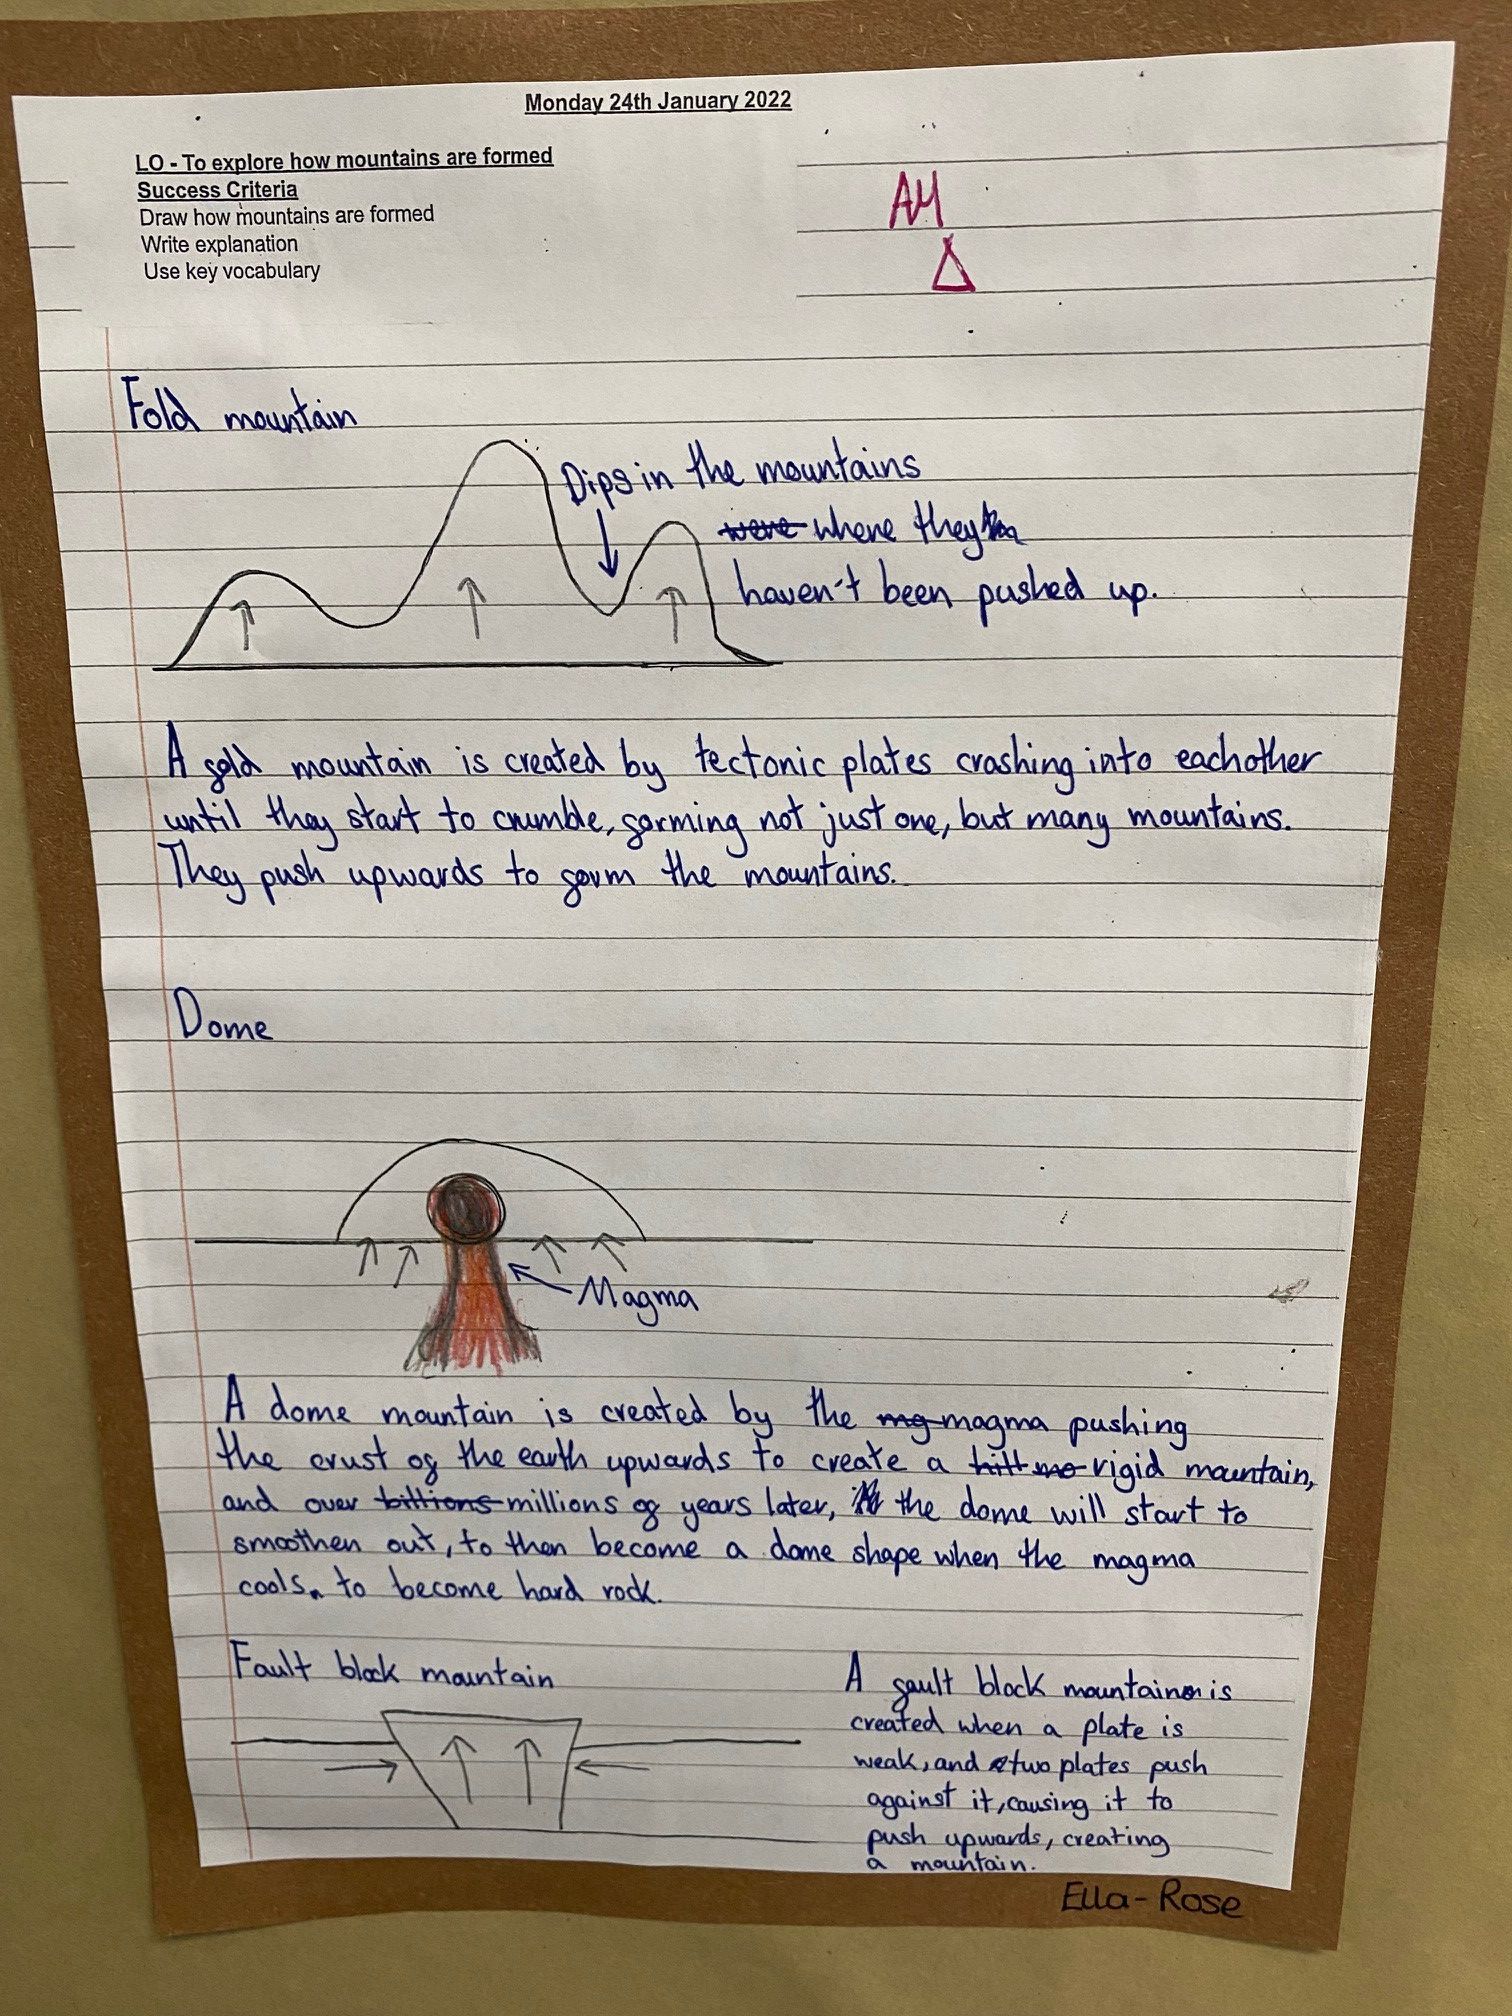 Monday 24th January 2022
LO - To explore how mountains are formed
Success Criteria
Draw how mountains are formed
Write explanation
Use key vocabulary
AM
Fold mountain
Dips in the mountains
were where they
haven't been pushed up.
A fold mountain is created by tectonic plates crashing into eachother
until they start to crumble, forming not just one, but many mountains.
They push upwards to form the mountains.
Dome
Magma
A dome mountain is created by the mg magma pushing
the crust of the earth upwards to create a hill mo rigid mountain,
and over billions millions of years later, the dome will start to
smoothen out, to then become a dome shape when the magma
cools. to become hard rock.
Fault block mountain
A fault block mountain is
created when a plate is
weak, and two plates push
against it, causing it to
push upwards, creating
a mountain.
Ella-Rose